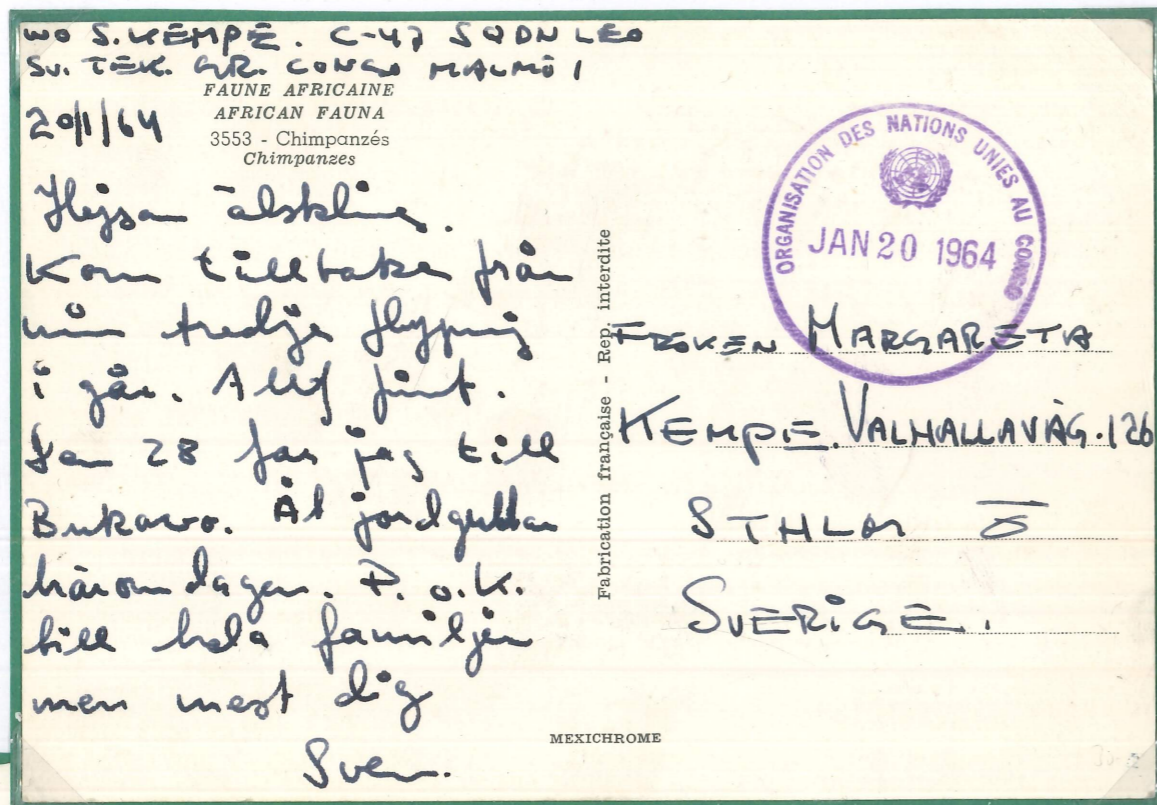 WO S. KEMPE. C-47 SQDN LEO
SV. TEK. GR. CONGO MALMÖ 1
FAUNE AFRICAINE
AFRICAN FAUNA
3553 - Chimpanzés
Chimpanzes
20/1/64
Hejsan älskling.
Kom tillbaka från
min tredje flygning
i går. Allt fint.
Den 28 far jag till
Bukavo. Åt jordgubbar
häromdagen. P. o. K.
till hela familjen
men mest dig
Sven.
Fabrication française - Rep. interdite
MEXICHROME
ORGANISATION DES NATIONS UNIES AU CONGO
JAN 20 1964
FRÖKEN MARGARETA
KEMPE. VALHALLAVÄG. 126
STHLM Ö
SVERIGE.